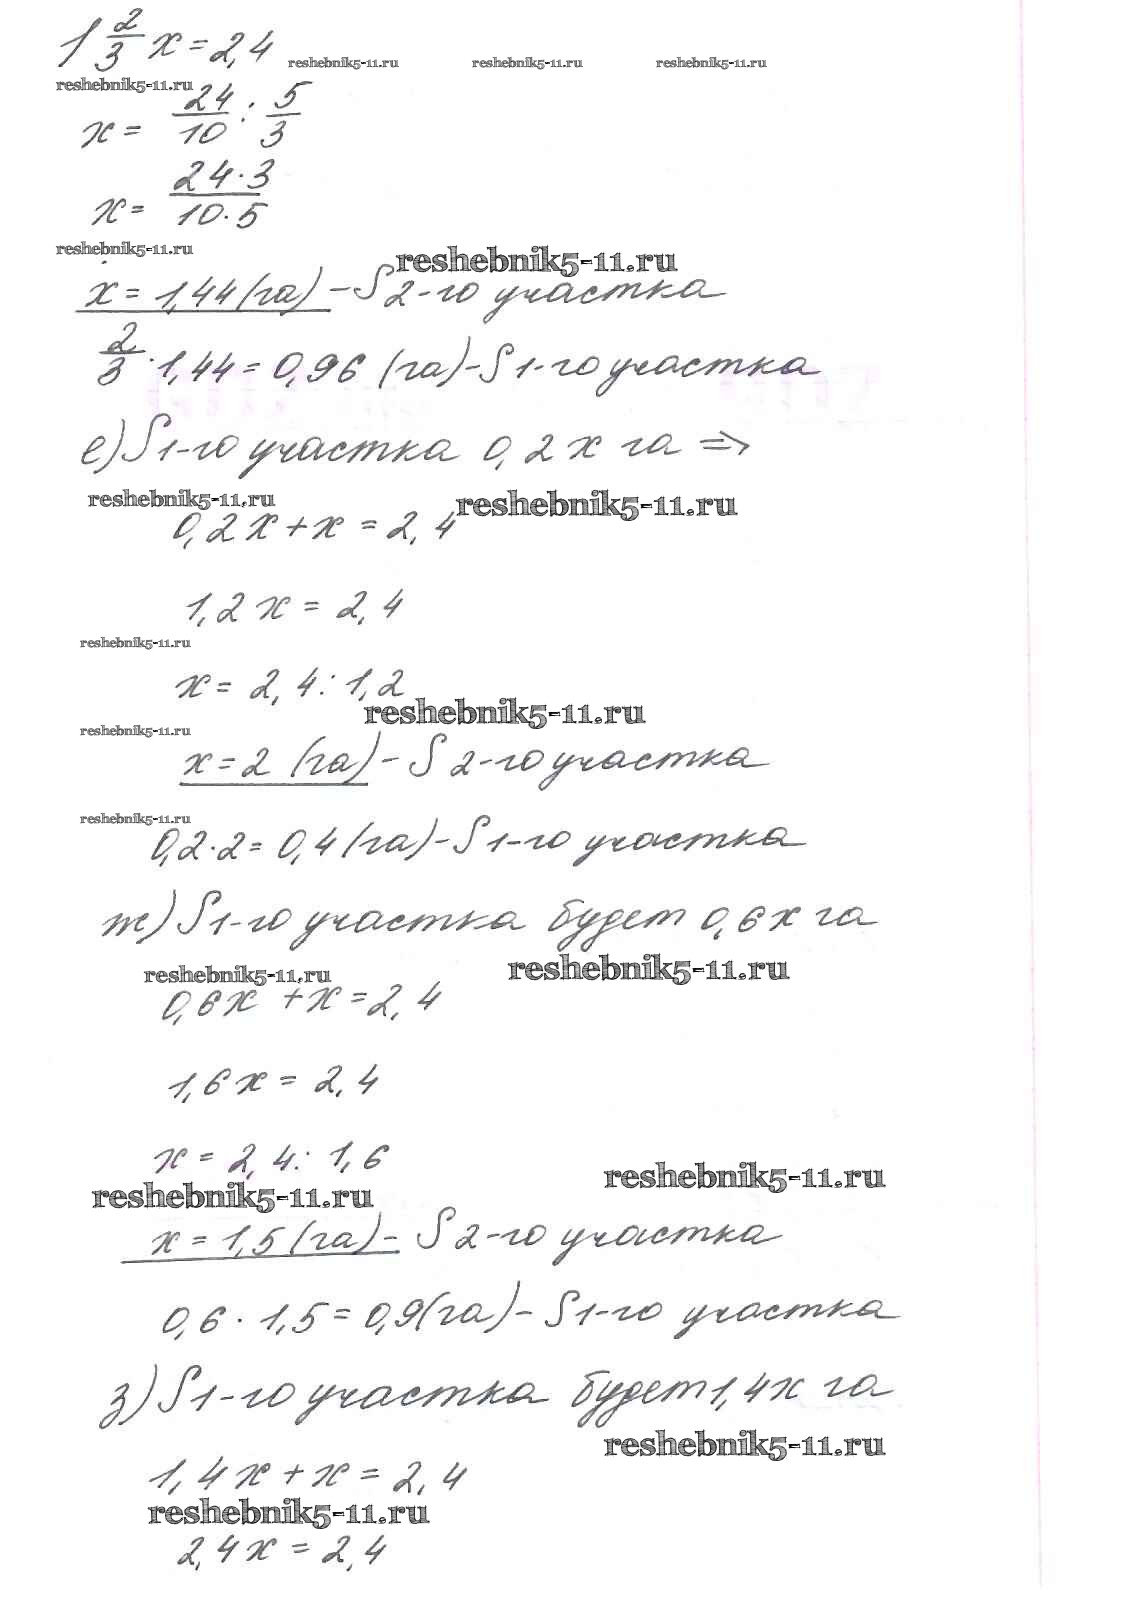 1 2/3 x = 2,4
reshebnik5-11.ru reshebnik5-11.ru reshebnik5-11.ru
reshebnik5-11.ru
x = 24/10 : 5/3
x = 24·3/10·5
reshebnik5-11.ru
reshebnik5-11.ru
x = 1,44 (га) – S 2-го участка
2/3 · 1,44 = 0,96 (га) – S 1-го участка
е) S 1-го участка 0,2x га ⇒
reshebnik5-11.ru reshebnik5-11.ru
0,2x + x = 2,4
1,2x = 2,4
reshebnik5-11.ru
x = 2,4 : 1,2
reshebnik5-11.ru
reshebnik5-11.ru
x = 2 (га) – S 2-го участка
reshebnik5-11.ru
0,2 · 2 = 0,4 (га) – S 1-го участка
ж) S 1-го участка будет 0,6x га
reshebnik5-11.ru reshebnik5-11.ru
0,6x + x = 2,4
1,6x = 2,4
x = 2,4 : 1,6
reshebnik5-11.ru
reshebnik5-11.ru
x = 1,5 (га) – S 2-го участка
0,6 · 1,5 = 0,9 (га) – S 1-го участка
з) S 1-го участка будет 1,4x га
reshebnik5-11.ru
1,4x + x = 2,4
reshebnik5-11.ru
2,4x = 2,4